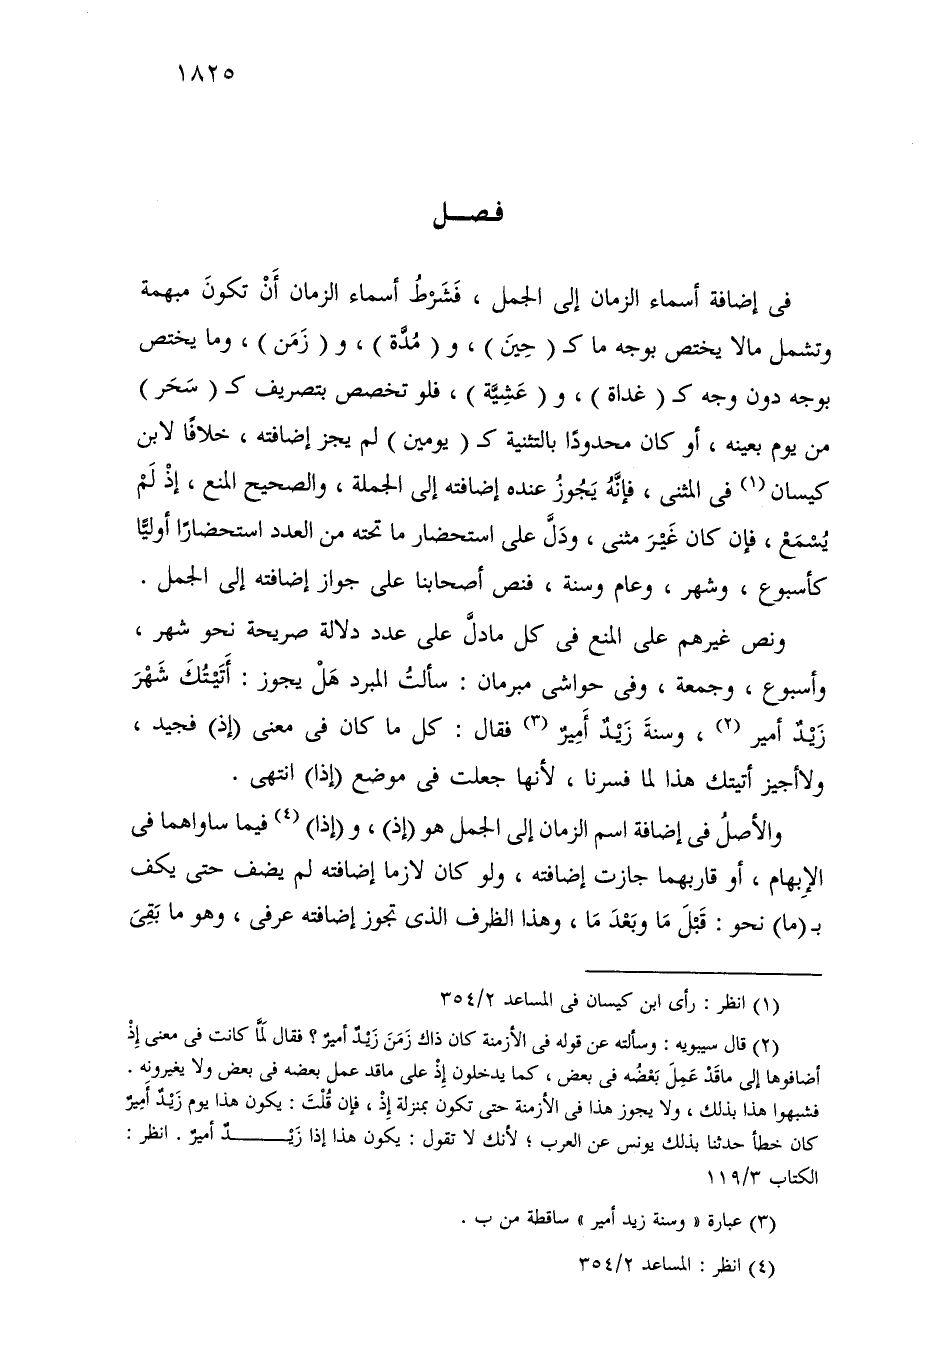 ١٨٢٥
فصــل
فى إضافة أسماء الزمان إلى الجمل ، فَشَرْطُ أسماء الزمان أَنْ تكونَ مبهمة
وتشمل مالا يختص بوجه ما كـ ( حِينَ ) ، و ( مُدَّة ) ، و ( زَمَن ) ، وما يختص
بوجه دون وجه كـ ( غداة ) ، و ( عَشِيَّة ) ، فلو تخصص بتصريف كـ ( سَحَر )
من يوم بعينه ، أو كان محدودًا بالتثنية كـ ( يومين ) لم يجز إضافته ، خلافًا لابن
كيسان (١) فى المثنى ، فإنَّهُ يَجُوزُ عنده إضافته إلى الجملة ، والصحيح المنع ، إذْ لَمْ
يُسْمَعْ ، فإن كان غَيْرَ مثنى ، ودَلَّ على استحضار ما تحته من العدد استحضارًا أوليًّا
كأسبوع ، وشهر ، وعام وسنة ، فنص أصحابنا على جواز إضافته إلى الجمل .
ونص غيرهم على المنع فى كل مادلَّ على عدد دلالة صريحة نحو شهر ،
وأسبوع ، وجمعة ، وفى حواشى مبرمان : سألتُ المبرد هَلْ يجوز : أَتَيْتُكَ شَهْرَ
زَيْدٌ أمير (٢) ، وسنةَ زَيْدٌ أَمِيرٌ (٣) فقال : كل ما كان فى معنى (إذ) فجيد ،
ولاأجيز أتيتك هذا لما فسرنا ، لأنها جعلت فى موضع (إذا) انتهى .
والأصلُ فى إضافة اسم الزمان إلى الجمل هو (إذ) ، و (إذا) (٤) فيما ساواهما فى
الإبهام ، أو قاربهما جازت إضافته ، ولو كان لازما إضافته لم يضف حتى يكف
بـ (ما) نحو : قَبْلَ مَا وبَعْدَ مَا ، وهذا الظرف الذى تجوز إضافته عرفى ، وهو ما بَقِىَ
(١) انظر : رأى ابن كيسان فى المساعد ٣٥٤/٢
(٢) قال سيبويه : وسألته عن قوله فى الأزمنة كان ذاك زَمَنَ زَيْدٌ أميرٌ ؟ فقال لَمَّا كانت فى معنى إذْ
أضافوها إلى ماقَدْ عَمِلَ بَعْضُه فى بعض ، كما يدخلون إذْ على ماقد عمل بعضه فى بعض ولا يغيرونه .
فشبهوا هذا بذلك ، ولا يجوز هذا فى الأزمنة حتى تكون بمنزلة إذْ ، فإن قُلْتَ : يكون هذا يوم زَيْدٌ أَمِيرٌ
كان خطأ حدثنا بذلك يونس عن العرب ؛ لأنك لا تقول : يكون هذا إذا زَيْـــــدٌ أميرٌ . انظر :
الكتاب ١١٩/٣
(٣) عبارة « وسنة زيد أمير » ساقطة من ب .
(٤) انظر : المساعد ٣٥٤/٢